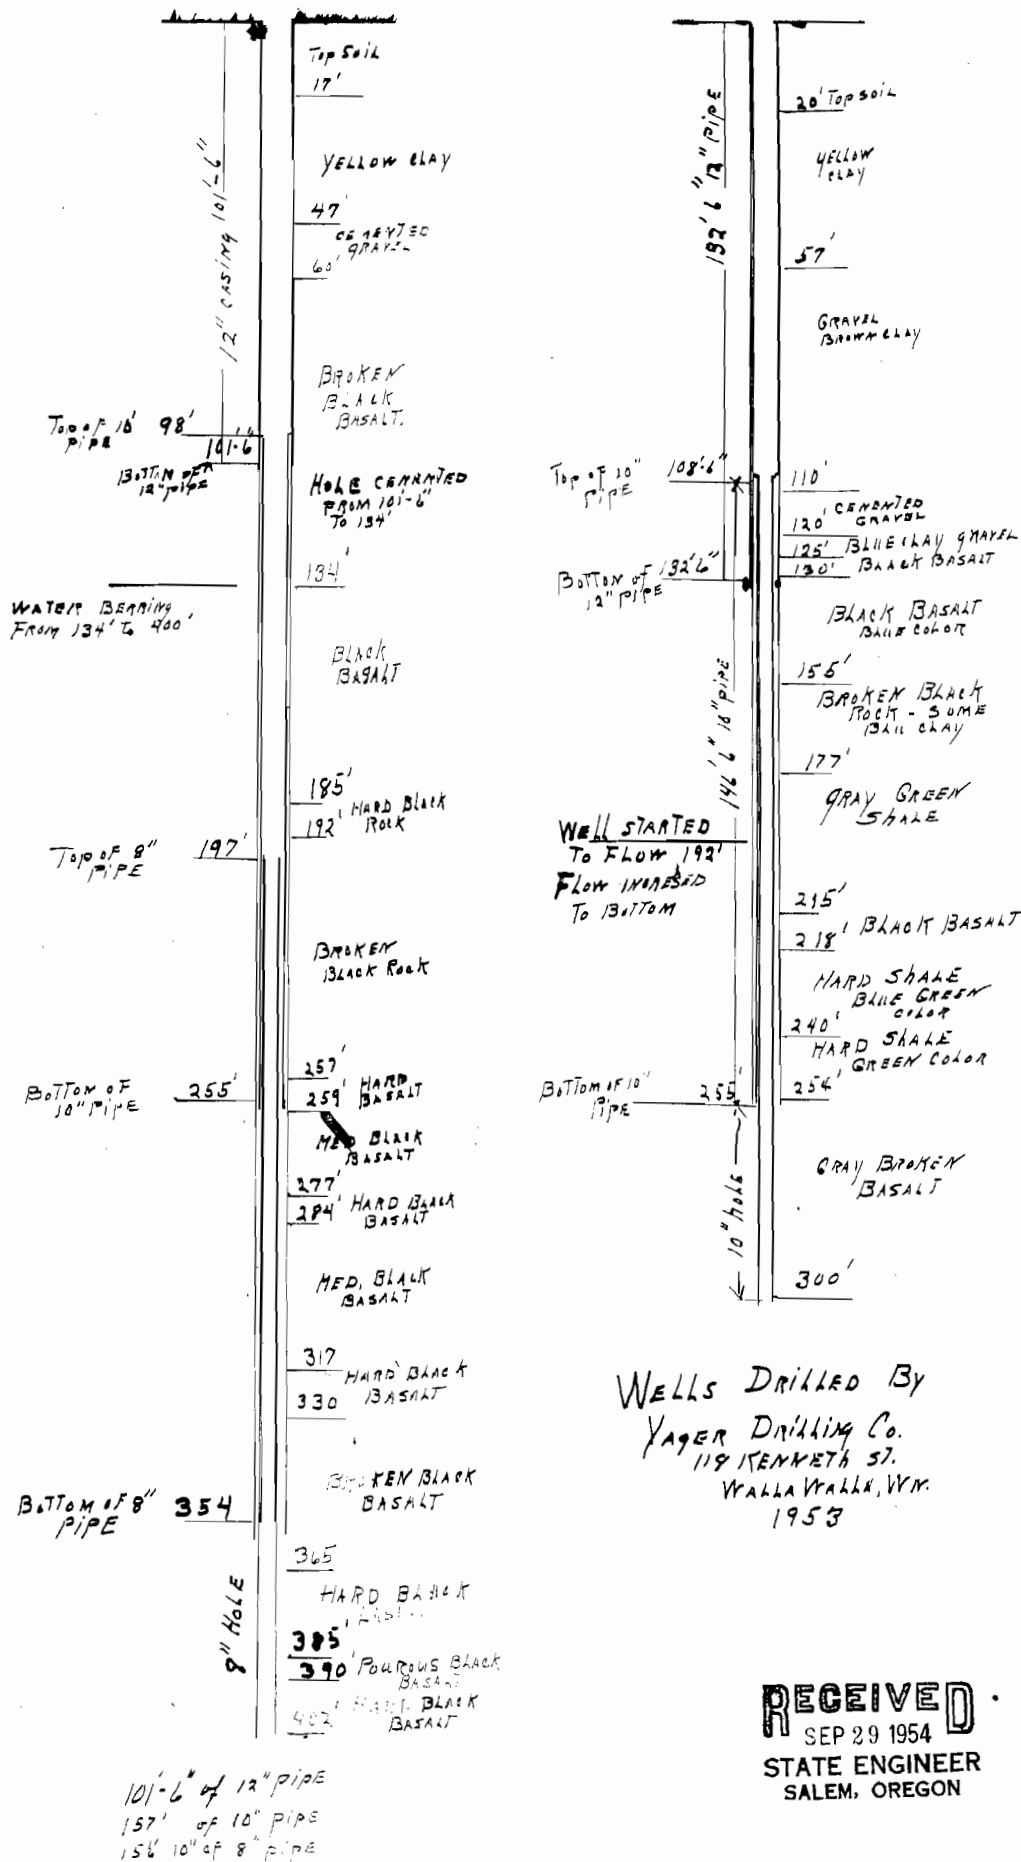 Top Soil
17'
YELLOW CLAY
47'
CEMENTED
GRAVEL
60'
12" CASING 101'-6"
BROKEN
BLACK
BASALT.
Top of 10'
PIPE
98'
101'-6"
BOTTOM OF
12" PIPE
HOLE CEMENTED
FROM 101'-6"
TO 134'
134'
WATER BEARING
FROM 134' TO 400'
BLACK
BASALT
185'
HARD BLACK
ROCK
192'
Top of 8"
PIPE
197'
BROKEN
BLACK ROCK
257'
HARD
BASALT
259'
BOTTOM OF
10" PIPE
255'
MED BLACK
BASALT
277'
284' HARD BLACK
BASALT
MED. BLACK
BASALT
317
HARD BLACK
BASALT
330
BROKEN BLACK
BASALT
BOTTOM OF 8"
PIPE
354
365
HARD BLACK
8" HOLE
385'
390' POUROUS BLACK
BASALT
402' HARD BLACK
BASALT
101'-6" of 12" PIPE
157' of 10" PIPE
156' 10" of 8" PIPE
20' Top soil
132' 6" 12" PIPE
YELLOW
CLAY
57'
GRAVEL
BROWN CLAY
Top of 10"
PIPE
108'-6"
110'
CEMENTED
GRAVEL
120'
125' BLUE CLAY GRAVEL
130' BLACK BASALT
Bottom of
12" PIPE
132'6"
BLACK BASALT
BLUE COLOR
155'
BROKEN BLACK
ROCK - SOME
BLUE CLAY
146' 6" 10" PIPE
177'
GRAY GREEN
SHALE
WELL STARTED
To FLOW 192'
FLOW INCRESED
To BOTTOM
215'
218' BLACK BASALT
HARD SHALE
BLUE GREEN
COLOR
240'
HARD SHALE
GREEN COLOR
254'
BOTTOM OF 10"
PIPE
255'
GRAY BROKEN
BASALT
10" HOLE
300'
WELLS DRILLED BY
YAGER DRILLING Co.
118 KENNETH ST.
WALLA WALLA, WN.
1953
RECEIVED
SEP 29 1954
STATE ENGINEER
SALEM, OREGON